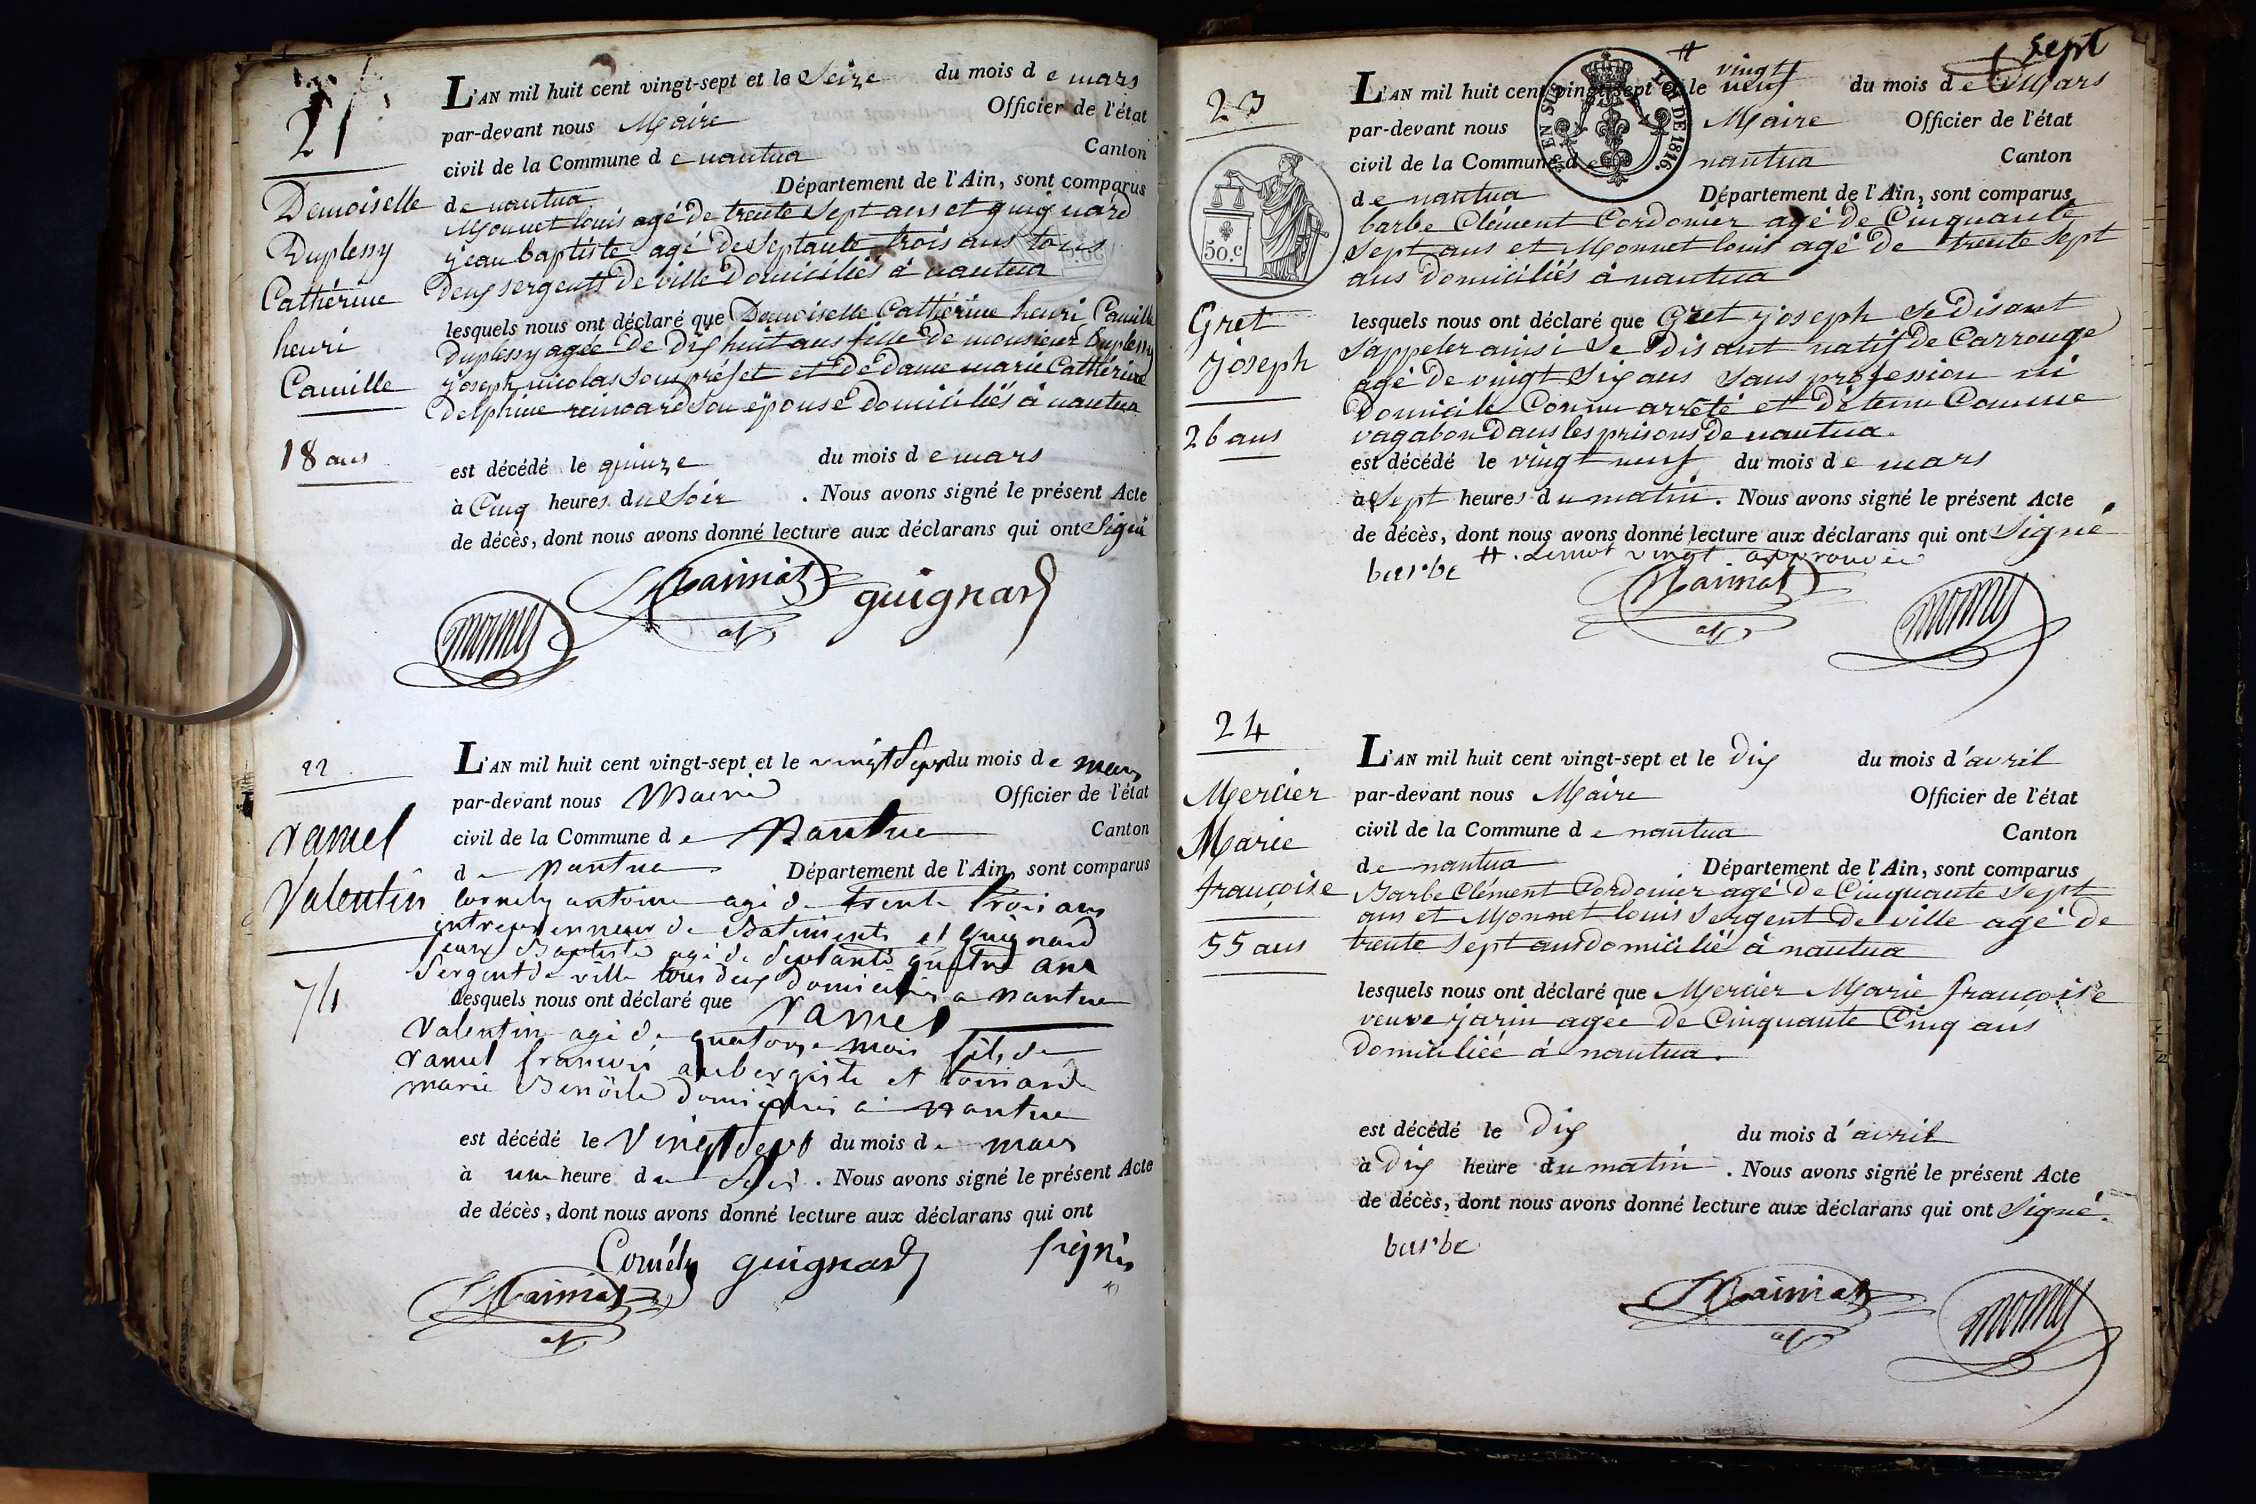 21
Demoiselle
Duplessy
Cathérine
henri
Camille
18 ans
L'AN mil huit cent vingt-sept et le Seize du mois de mars
par-devant nous Maire Officier de l'état
civil de la Commune de nantua Canton
de nantua Département de l'Ain, sont comparus
Monnet louis agé de trente sept ans et guignard
jean baptiste agé de Septante trois ans tous
deux sergents de ville Domiciliés à nantua
lesquels nous ont déclaré que Demoiselle Cathérine henri Camille
Duplessy agée de dix huit ans fille de monsieur Duplessy
joseph nicolas sous préfet et de dame marie Cathérine
Delphine son épouse Domiciliés à nantua
est décédé le quinze du mois de mars
à Cinq heures du Soir . Nous avons signé le présent Acte
de décès, dont nous avons donné lecture aux déclarans qui ont Signé
guignard
22
ramel
Valentin
L'AN mil huit cent vingt-sept et le vingt Sept du mois de mars
par-devant nous Maire Officier de l'état
civil de la Commune de Nantua Canton
de Nantua Département de l'Ain, sont comparus
Cornely antoine agé de trente trois ans
entrepreneur de Batiments et guignard
jean Baptiste agé de Septante quatre ans
Sergent de ville tous deux domiciliés a nantua
lesquels nous ont déclaré que ramel
Valentin agé de quatorze mois fils de
ramel francois aubergiste et
marie Benoite domiciliés a nantua
est décédé le Vingt Sept du mois de mars
à une heure du Soir . Nous avons signé le présent Acte
de décès, dont nous avons donné lecture aux déclarans qui ont
signés
Cornély guignard
sept
23
50.c
EN SUS LOI DE 1816.
Gret
joseph
26 ans
L'AN mil huit cent vingt-sept et le # vingt neuf du mois de Mars
par-devant nous Maire Officier de l'état
civil de la Commune de nantua Canton
de nantua Département de l'Ain, sont comparus
barbe Clément Cordonier agé de Cinquante
Sept ans et Monnet louis agé de trente Sept
ans Domiciliés à nantua
lesquels nous ont déclaré que Gret joseph Se Disant
S'appeler ainsi Se Disant natif de Carrouge
agé de vingt Six ans Sans profession ni
Domicile Connu arrêté et Détenu Comme
vagabon Dans les prisons De nantua.
est décédé le vingt neuf du mois de mars
à Sept heures du matin. Nous avons signé le présent Acte
de décès, dont nous avons donné lecture aux déclarans qui ont Signé
barbe # . Le mot vingt approuvé
24
Mercier
Marie
françoise
55 ans
L'AN mil huit cent vingt-sept et le Dix du mois d'avril
par-devant nous Maire Officier de l'état
civil de la Commune de nantua Canton
de nantua Département de l'Ain, sont comparus
Barbe Clément Cordonier agé de Cinquante Sept
ans et Monnet louis Sergent de ville agé de
trente Sept ans domicilié à nantua
lesquels nous ont déclaré que Mercier Marie françoise
veuve jarin agée de Cinquante Cinq ans
Domiciliée à nantua.
est décédé le Dix du mois d'avril
à Dix heure du matin . Nous avons signé le présent Acte
de décès, dont nous avons donné lecture aux déclarans qui ont Signé.
barbe